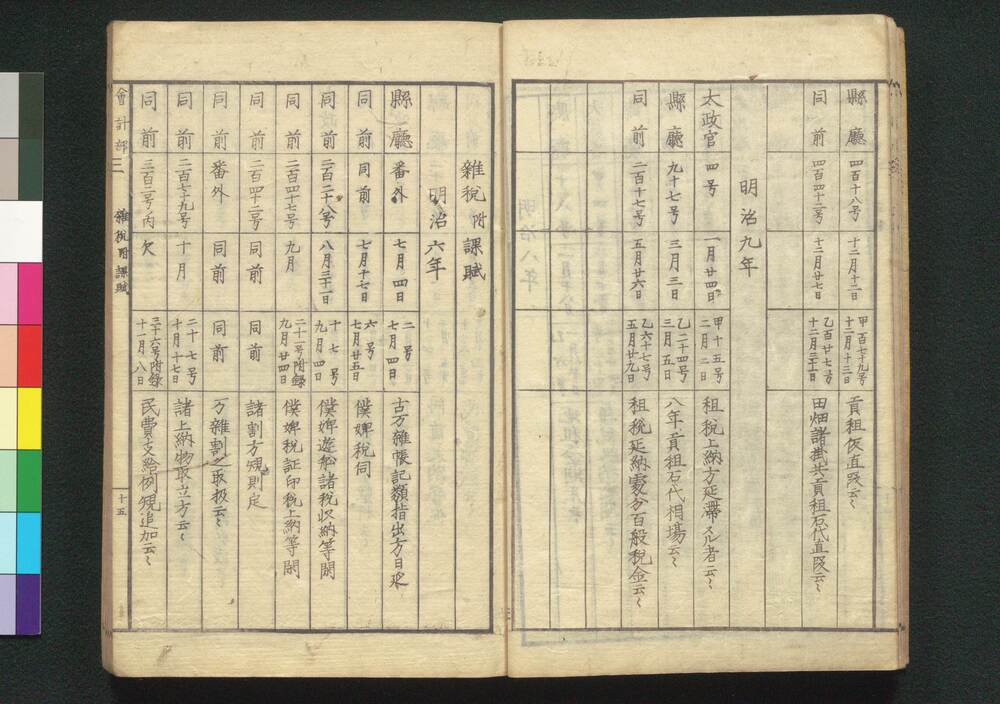 縣廳 四百十八号 十二月十二日 甲百七十九号 十二月十三日 貢租仮直段云々
同前 四百四十二号 十二月廿七日 乙百廿七号 十二月三十一日 田畑諸掛共貢租石代直段云々
明治九年
太政官 四号 一月廿四日 甲十五号 二月二日 租税上納方延滞スル者云々
縣廳 九十七号 三月三日 乙二十四号 三月五日 八年貢租石代相場云々
同前 二百十七号 五月廿六日 乙六十七号 五月廿九日 租税延納處分百般税金云々
雜税附課賦
明治六年
縣廳 番外 七月四日 二号 七月四日 古万雜帳記額指出方日限
同前 同前 七月十七日 六号 七月廿五日 僕婢税伺
同前 二百二十八号 八月三十一日 十七号 九月四日 僕婢遊船諸税収納等開
同前 二百四十七号 九月 二十一号附録 九月廿四日 僕婢税証印税上納等開
同前 二百四十二号 同前 同前 諸割方規則定
同前 番外 同前 同前 万雜割之取扱云々
同前 二百七十九号 十月 二十七号 十月十七日 諸上納物取立方云々
同前 三百二号ノ内 欠 三十六号附録 十一月八日 民費支給例規追加云々
會計部 雜税附課賦 十五